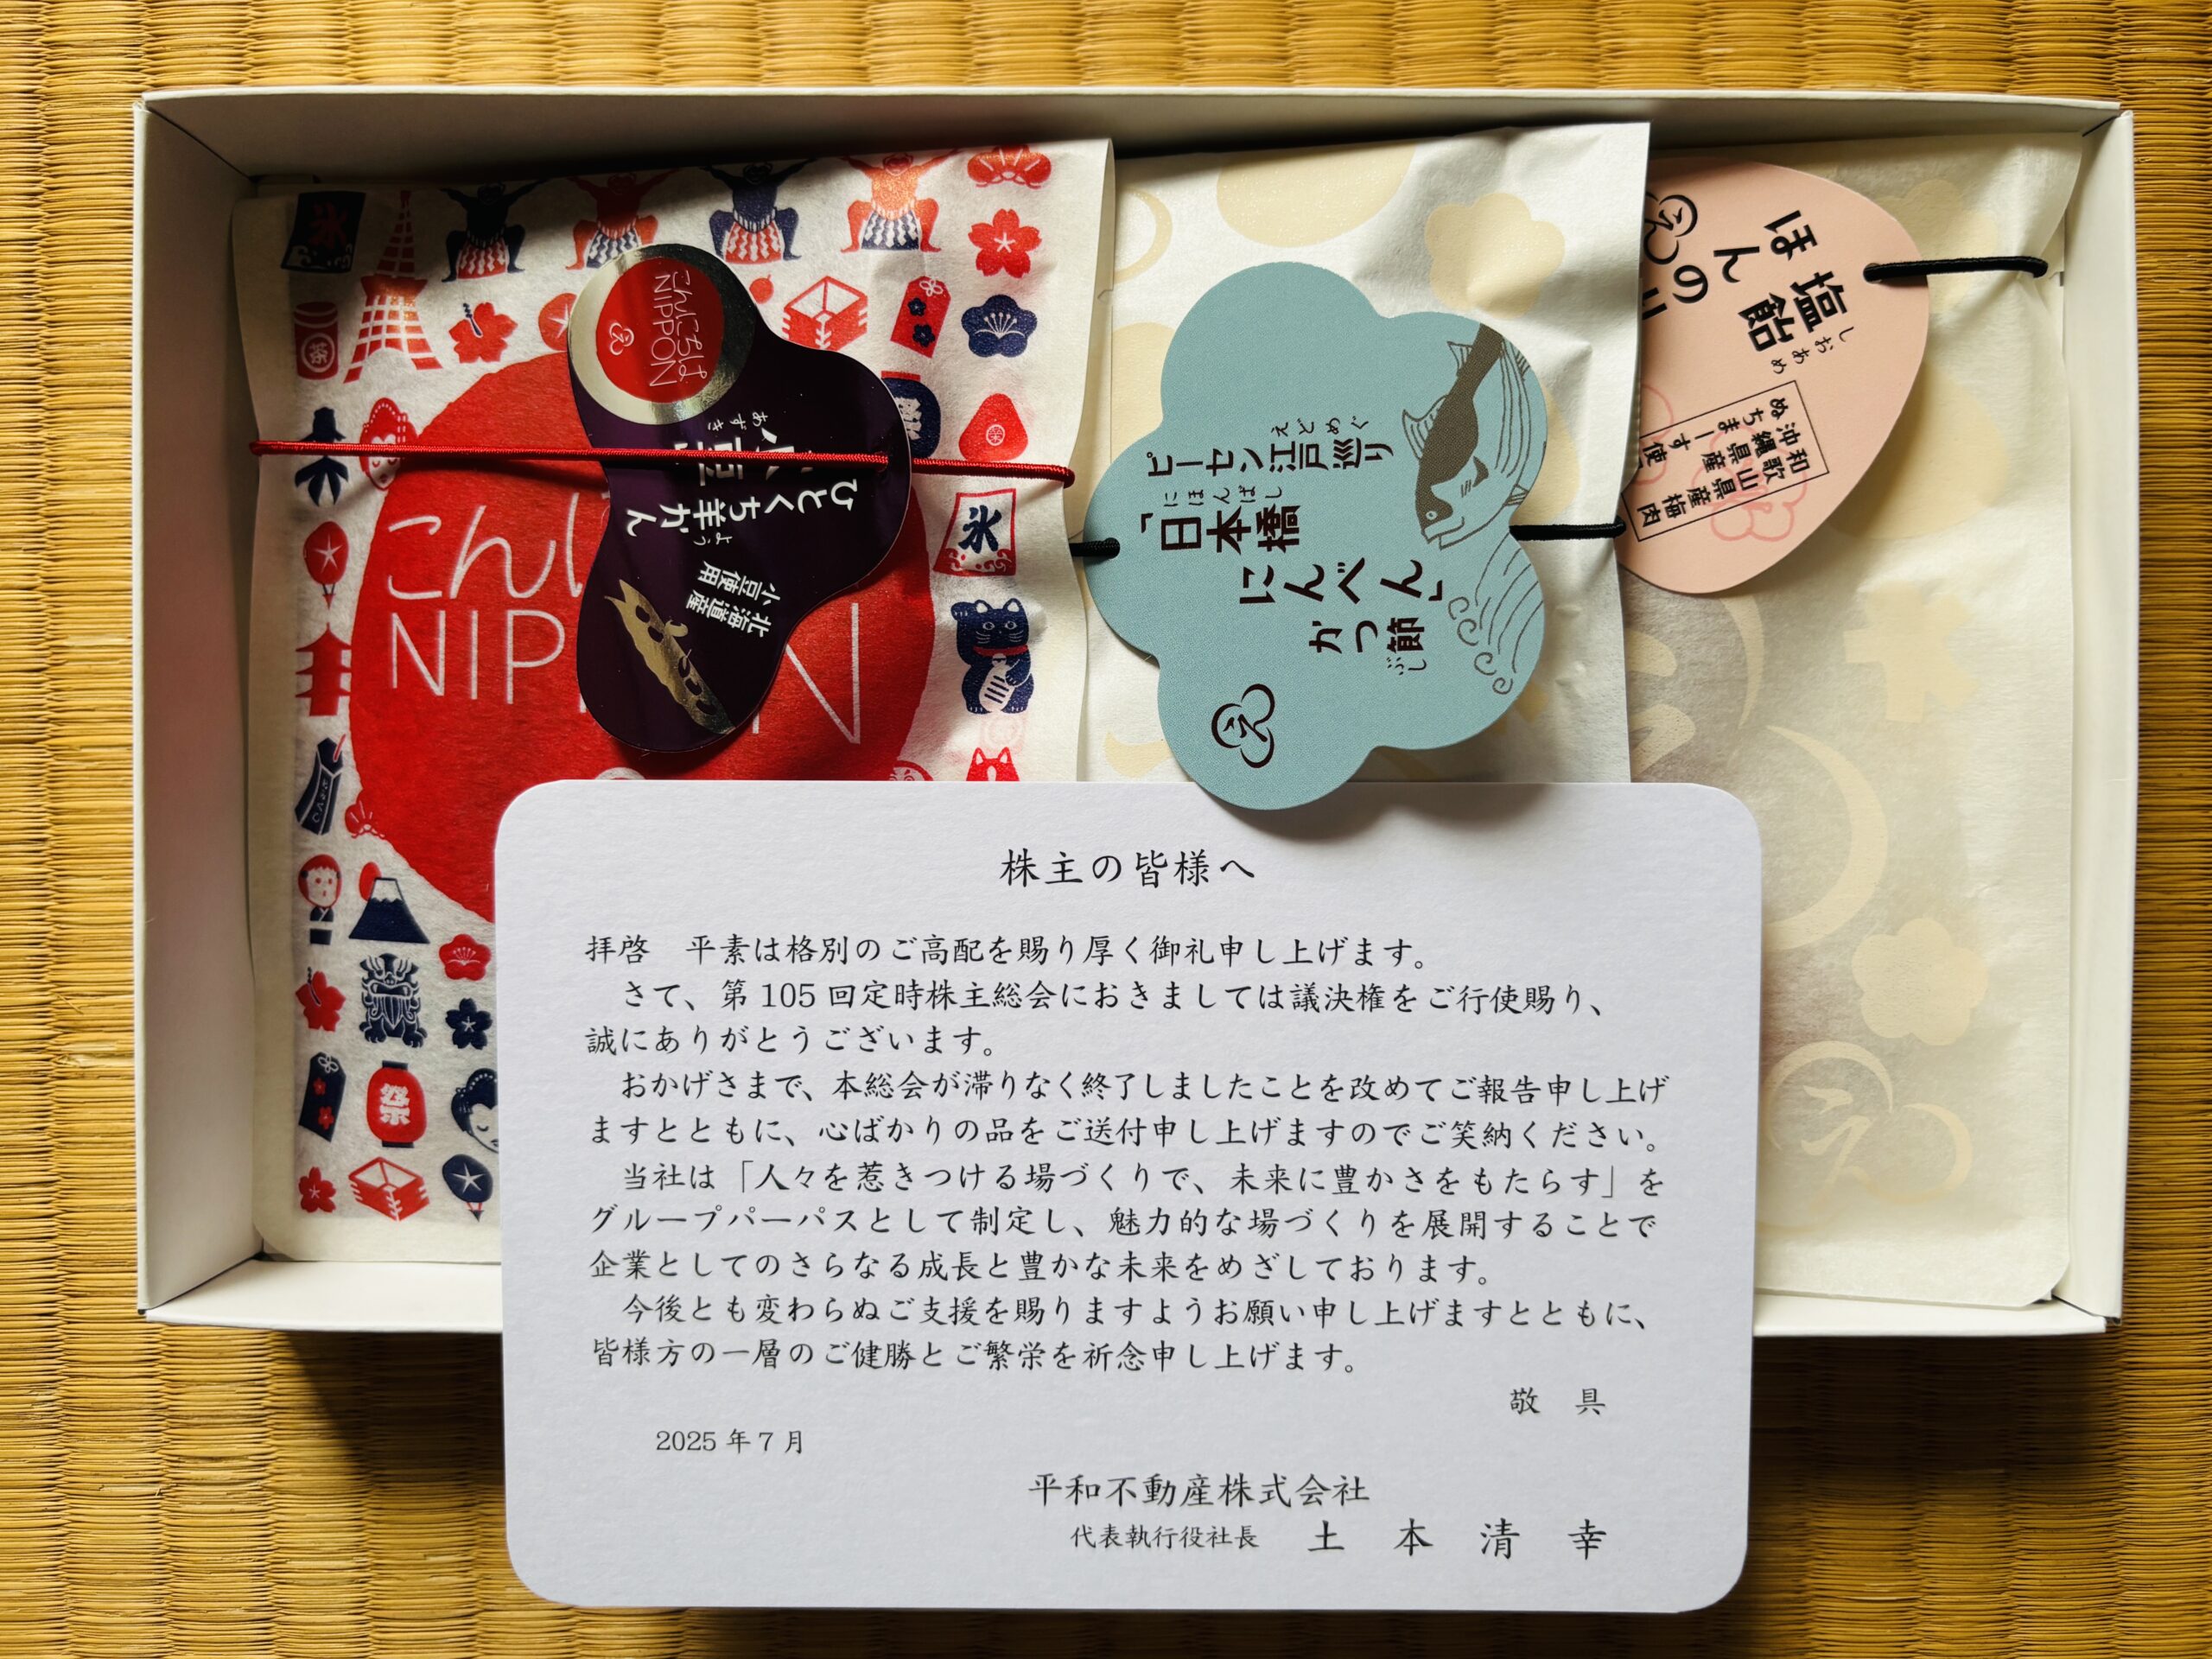 氷
茶
こんにちは
NIPPON
あずき
小豆
ひとくち羊かん
よう
北海道産
小豆使用
祭
こん
NIPP N
氷
祭
えどめぐ
ピーセン江戸巡り
にほんばし
「日本橋
にんべん」
かつ節
ぶし
え
ほんのり
塩飴
しおあめ
和歌山県産梅肉
沖縄県産
ぬちまーす使
株主の皆様へ
拝啓　平素は格別のご高配を賜り厚く御礼申し上げます。
さて、第105回定時株主総会におきましては議決権をご行使賜り、
誠にありがとうございます。
おかげさまで、本総会が滞りなく終了しましたことを改めてご報告申し上げ
ますとともに、心ばかりの品をご送付申し上げますのでご笑納ください。
当社は「人々を惹きつける場づくりで、未来に豊かさをもたらす」を
グループパーパスとして制定し、魅力的な場づくりを展開することで
企業としてのさらなる成長と豊かな未来をめざしております。
今後とも変わらぬご支援を賜りますようお願い申し上げますとともに、
皆様方の一層のご健勝とご繁栄を祈念申し上げます。
敬　具
2025年7月
平和不動産株式会社
代表執行役社長　土　本　清　幸